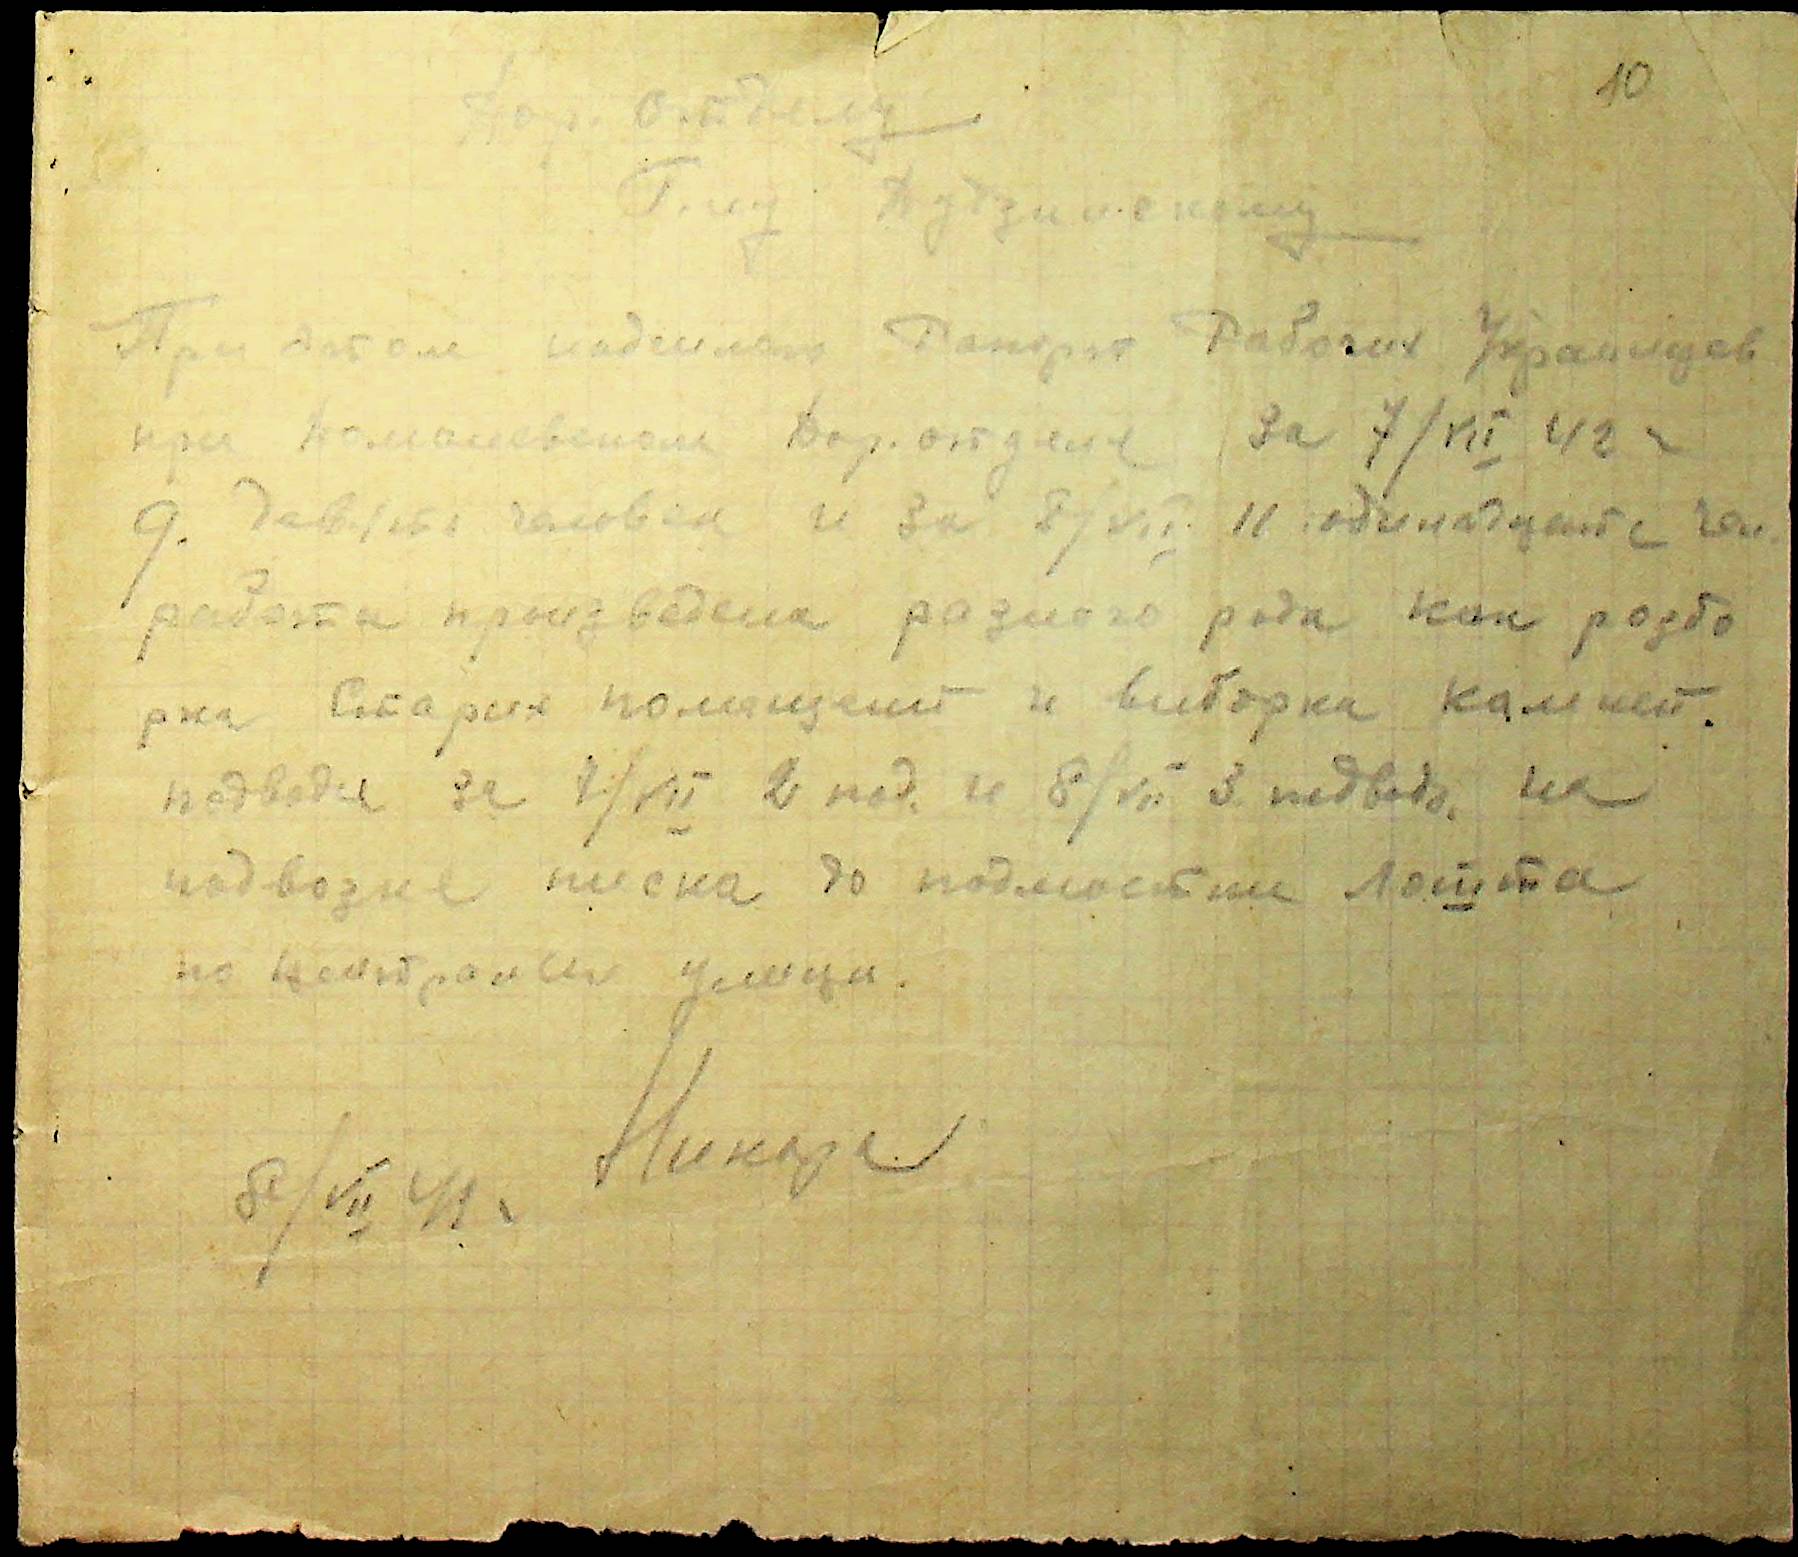 10
Дор. Отделу
Г-ну Дудзинскому
При этом надсилаю Рапорт Рабочих Украинцев
при Домачевском Дор. отделе за 7/VII 42 г
9. девять человек и за 8/VII. 11 одинадцать чел.
работа произведена разного рода как розбо
рка Старих помещений и виборка камней.
подводи за 7/VII 2 под. и 8/VII 3 подводи. на
подвозке писка до подмостки
по централни улици.
8/VII 42 г